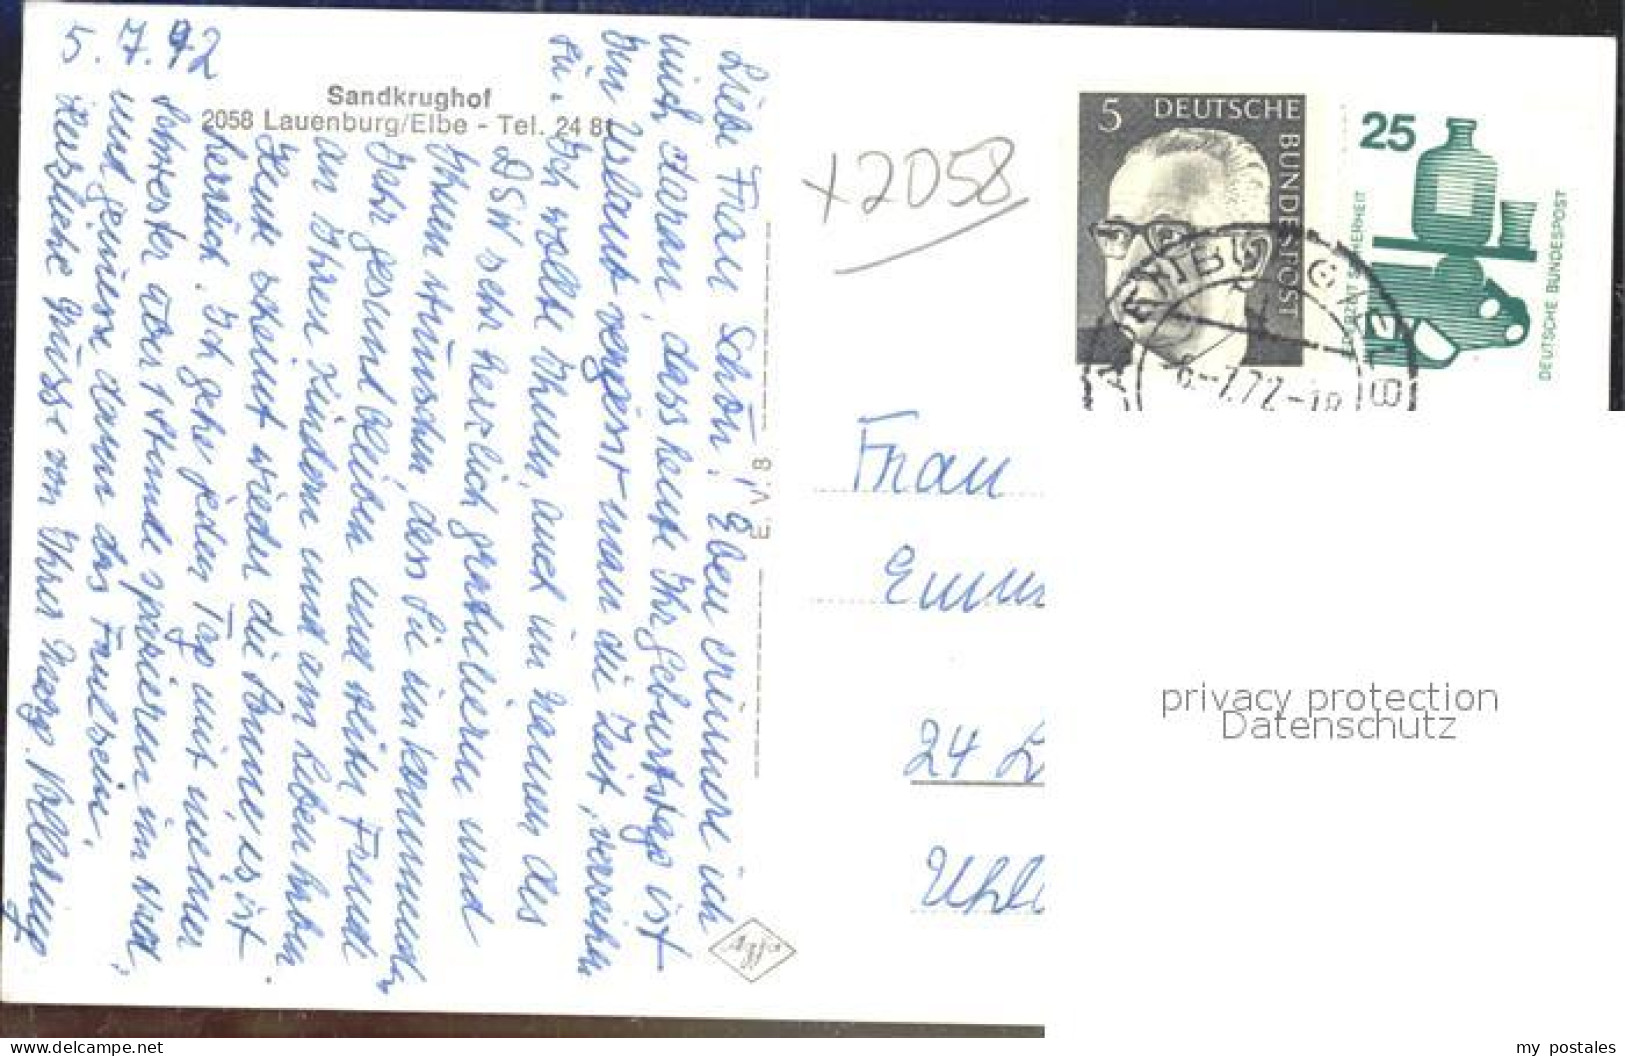 5.7.72
Sandkrughof
2058 Lauenburg/Elbe - Tel. 24 81
Liebe Frau Schön! Eben erinnere ich
mich daran, dass heute Ihr Geburtstag ist
Im Urlaub vergisst man die Zeit, verzeihen
Sie. Ich wollte Ihnen, auch im Namen des
DSW sehr herzlich gratulieren und
Ihnen wünschen, dass Sie im kommenden
Jahr gesund bleiben und weiter Freude
an Ihren Kindern und am Leben haben.
Heute scheint wieder die Sonne, es ist
herrlich. Ich gehe jeden Tag mit meiner
Schwester über 1 Stunde spazieren im Wald,
und genieße dann das Faulsein.
Herzliche Grüsse von Ihrer
E. V. 8
x2058
5 DEUTSCHE BUNDESPOST
25
JEDERZEIT SICHERHEIT
DEUTSCHE BUNDESPOST
6.-7.72-18
Frau
24 L
Uhl
privacy protection
Datenschutz
www.delcampe.net
my_postales